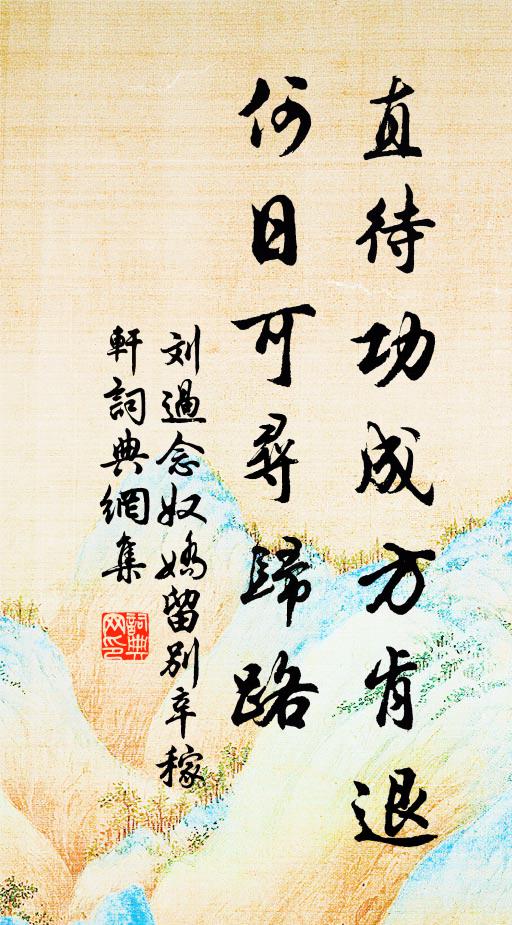 直待功成方肯退
何日可尋歸路
刘過念奴嬌留别辛稼
軒詞典網集
詞典
网印